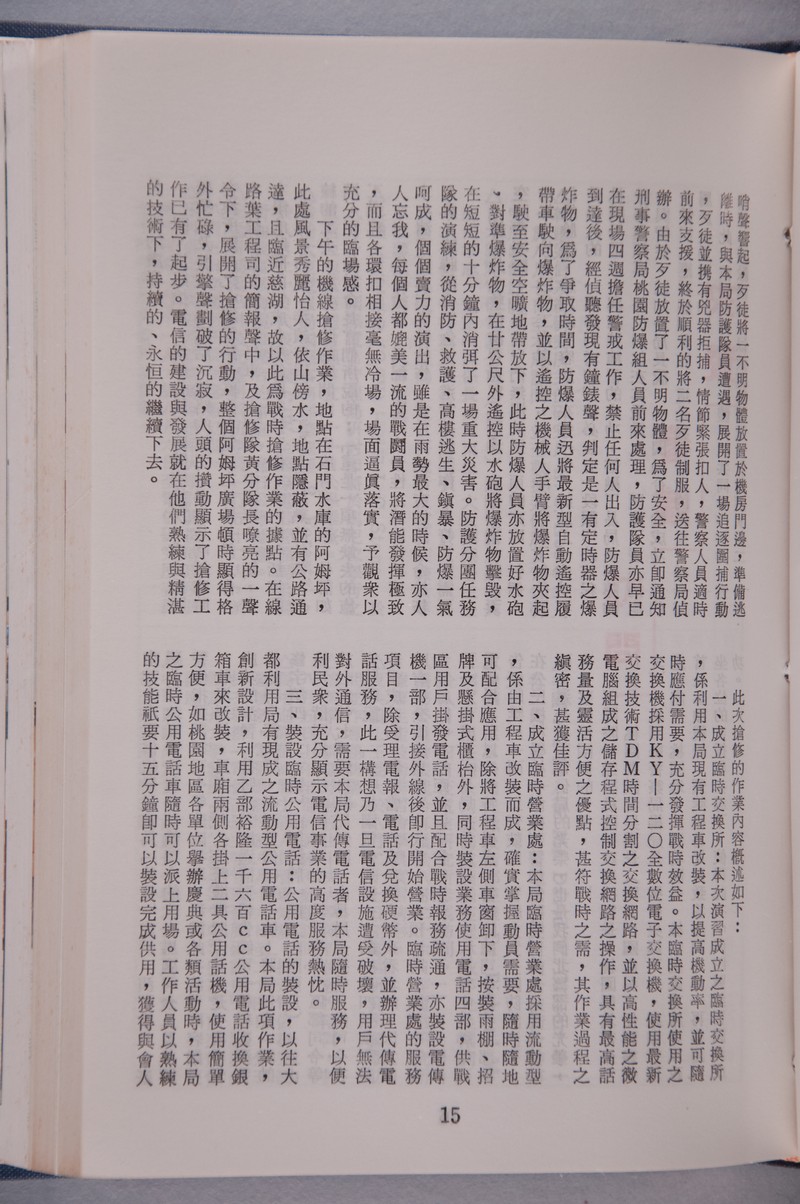 哨聲響起，歹徒將一不明物體放置於機房門邊，準備逃
離時，與本局防護隊員遭遇，展開了一場追逐圍捕行動
，歹徒並携有兇器拒捕，情節緊張扣人，警察人員適時
前來支援，終於順利的將二名歹徒制服，送往警察局偵
辦。由於歹徒放置了一不明物體，爲了安全，立卽通知
刑事警察局桃園防爆組人員前來處理，防護隊員亦早已
在現場四週擔任警戒工作，禁止任何人出入，防爆人員
到達後，經偵聽發現有鐘錶聲，判定是一有定時器之爆
炸物，爲了爭取時間，防爆人員迅將最新型自動遙控履
帶車駛向爆炸物，並以遙控之機械人手臂將爆炸物夾起
，駛至安全空曠地帶放下，此時防爆人員亦放置好水砲
，對準爆炸物，在廿公尺外遙控以水砲將爆炸物擊毀，
在短短的十分鐘內消弭了一場重大災害。防護分團任務
隊的演練，從消防、救護、高樓逃生、鎮暴、防爆一氣
呵成，個個賣力的演出，雖是在雨勢最大的時候，亦人
人忘我，每個人都媲美一流的戰鬪員，將潛能發揮極致
，而且各環扣相接毫無冷場，場面逼眞落實，予觀衆以
充分的臨場感。
下午的機線搶修作業，地點在石門水庫的阿姆坪，
此處風景秀麗怡人，依山傍水，地點隱蔽，並有公路通
達，且臨近慈湖，故以此爲戰時搶修作業的據點。在線
路葉工程司的簡報聲中，及搶修隊黃分隊長嘹亮的一聲
令下，展開了搶修的行動，整個阿姆坪廣場頓時顯得格
外忙碌，引擎聲劃破了沉寂，人頭的攢動顯示了搶修工
作已有了起步。電信的建設與發展就在他們熟練與精湛
的技術下，持續的、永恒的繼續下去。
此次搶修的作業內容概述如下：
一、成立臨時交換所：本次演習成立之臨時交換所
，係利用本局現有工程車改裝，以提高機動率，並可隨
時應付需要，充分發揮戰時效益。本臨時交換所使用之
交換機採用KY－一二〇全數位電子交換機，使用最新
交換技術TDM時間分割之交換網路，並以高性能之微
電腦組成之儲存程式控制交換網路之操作，具有最高話
務量及靈活方便之優點，甚符戰時之需，其作業過程之
縝密，甚獲佳評。
二、成立臨時營業處：本局臨時營業處採用流動型
，係由工程車改裝而成，確實掌握動員需要，隨時隨地
可配合應用，除將工程車左側車窗卸下，按裝雨棚、招
牌及懸掛式櫃枱外，同時裝設業務使用電話四部，供戰
區用戶掛發電話，並且配合戰時報務疏通，亦裝設電傳
機一部，引接外線後卽行開始營業。臨時營業處的服務
項目，除受理電報、電話及兌換硬幣外，並辦理代傳電
話服務，此一構想乃一旦電信設施遭受破壞，用戶無法
對外通信，需要本局代傳電話者，本局隨時服務，以便
利民衆，充分顯示電信事業的高度服務熱忱。
三、裝設臨時公用電話：公用電話的裝設，以往大
都利用局有現成之流動型公用電話車。本局此項作業，
創新設計，利用乙部裕隆一千六百cc公用電話收換銀
箱車來改裝，車廂兩側各掛上二具公用話機，使用簡單
方便，如桃園地區各單位擧辦慶典或各類活動時，本局
之臨時公用電話車隨時可以派上用場。工作人員以熟練
的技能祇要十五分鐘卽可以裝設完成供用，獲得與會人
15